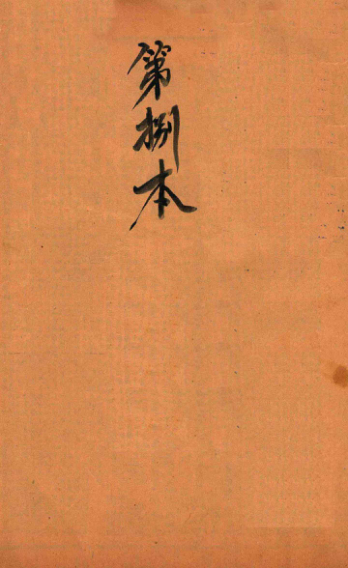 第捌本